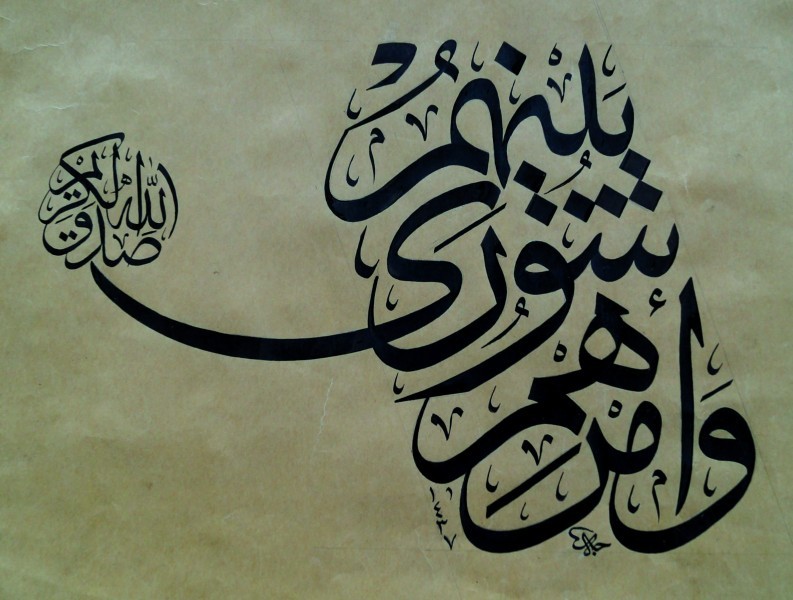 وَأَمْرُهُمْ
شُورَى
بَيْنَهُمْ
صدق الله الكريم